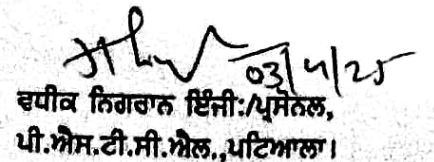 03/4/25
ਵਧੀਕ ਨਿਗਰਾਨ ਇੰਜੀ:/ਪ੍ਰਸੋਨਲ,
ਪੀ.ਐਸ.ਟੀ.ਸੀ.ਐਲ.,ਪਟਿਆਲਾ।